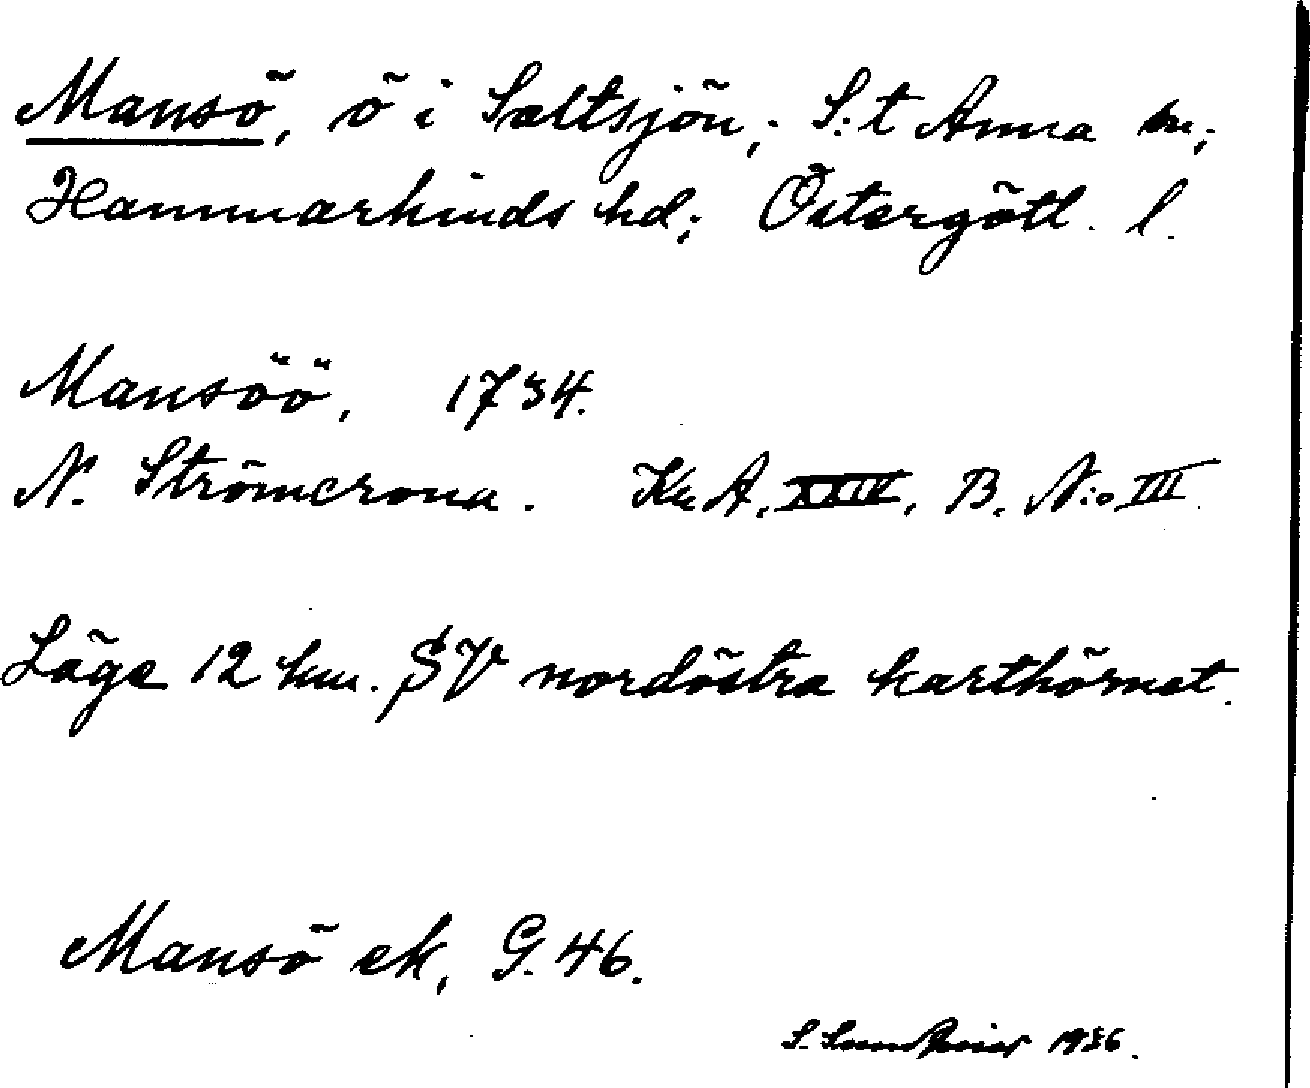 Mansö, ö i Saltsjön; S:t Anna sn;
Hammarkinds hd; Östergötl. l.
Mansöö, 1734.
N. Strömcrona. Kr. A. XXIV, B. N:o III.
Läge 12 km. SV nordöstra karthörnet.
Mansö ek, G. 46.
S. 1936.